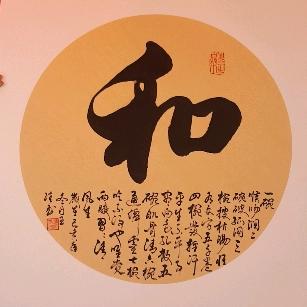 和
一碗
喉吻潤二
碗破孤悶三
碗搜枯腸惟
有文字五千卷
四碗發輕汗
平生不平事
盡向毛孔散五
碗肌骨清六碗
通仙靈七碗
吃不得也唯覺
兩腋習習清
風生